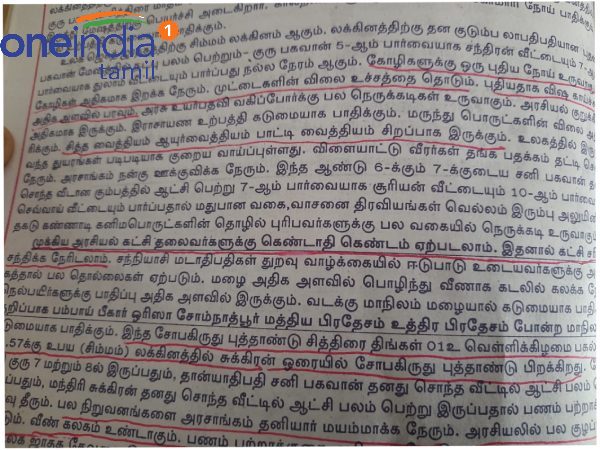 குரு ப
பெயர்ச்சி அடைகிறார்.
நோய் பாதிக்கு
oneindia
tamil
1
லக்கினத்திற்கு சிம்மம் லக்கினம் ஆகும். லக்கினத்திற்கு தன குடும்ப லாபதிபதியான
பலம் பெற்றும்- குரு பகவான் 5-ஆம் பார்வையாக சந்திரன் வீட்டையும் 7-ஆ
பார்வையாக துலாம் வீட்டையும் பார்ப்பது நல்ல நேரம் ஆகும். கோழிகளுக்கு ஒரு புதிய நோய் உருவாகு
கோழிகள் அதிகமாக இறக்க நேரும். முட்டைகளின் விலை உச்சத்தை தொடும். புதியதாக விஷ காய்ச்ச
அதிக அளவில் பரவும். அரசு உயர்பதவி வகிப்போர்க்கு பல நெருக்கடிகள் உருவாகும். அரசியல் குறுக்
அதிகமாக இருக்கும். இராசாயண உற்பத்தி கடுமையாக பாதிக்கும். மருந்து பொருட்களின் விலை அ
சிக்கும். சித்த வைத்தியம் ஆயுர்வைத்தியம் பாட்டி வைத்தியம் சிறப்பாக இருக்கும். உலகத்தில் இரு
வந்த துயரங்கள் படிபடியாக குறைய வாய்ப்புள்ளது. விளையாட்டு வீரர்கள் தங்க பதக்கம் தட்டி செ
நேரும். அரசாங்கம் நன்கு ஊக்குவிக்க நேரும். இந்த ஆண்டு 6-க்கும் 7-க்குடைய சனி பகவான் த
சொந்த வீடான கும்பத்தில் ஆட்சி பெற்று 7-ஆம் பார்வையாக சூரியன் வீட்டையும் 10-ஆம் பார்
செவ்வாய் வீட்டையும் பார்ப்பதால் மதுபான வகை,வாசனை திரவியங்கள் வெல்லம் இரும்பு அலுமின்
தகடு கண்ணாடி கனிமபொருட்களின் தொழில் புரிபவர்களுக்கு பல வகையில் நெருக்கடி உருவாகும்
முக்கிய அரசியல் கட்சி தலைவர்களுக்கு கெண்டாதி கெண்டம் ஏற்படலாம். இதனால் கட்சி சரி
சந்திக்க நேரிடலாம். சந்நியாசி மடாதிபதிகள் துறவு வாழ்க்கையில் ஈடுபாடு உடையவர்களுக்கு அ
கத்தால் பல தொல்லைகள் ஏற்படும். மழை அதிக அளவில் பொழிந்து வீணாக கடலில் கலக்க நே
நெல்பயிர்களுக்கு பாதிப்பு அதிக அளவில் இருக்கும். வடக்கு மாநிலம் மழையால் கடுமையாக பாதி
றிப்பாக பம்பாய் பீகார் ஒரிஸா சோம்நாத்பூர் மத்திய பிரதேசம் உத்திர பிரதேசம் போன்ற மாநில
டுமையாக பாதிக்கும். இந்த சோபகிருது புத்தாண்டு சித்திரை திங்கள் 01உ வெள்ளிக்கிழமை பகல்
.57க்கு உபய (சிம்மம்) லக்கினத்தில் சுக்கிரன் ஓரையில் சோபகிருது புத்தாண்டு பிறக்கிறது.
குரு 7 மற்றும் 8ல் இருப்பதும், தான்யாதிபதி சனி பகவான் தனது சொந்த வீட்டில் ஆட்சி பலம்
பதும், மந்திரி சுக்கிரன் தனது சொந்த வீட்டில் ஆட்சி பலம் பெற்று இருப்பதால் பணம் பற்றாக்
வு தீரும். பல நிறுவனங்களை அரசாங்கம் தனியார் மயம்மாக்க நேரும். அரசியலில் பல குழப்
டும். வீண் கலகம் உண்டாகும். பணம்